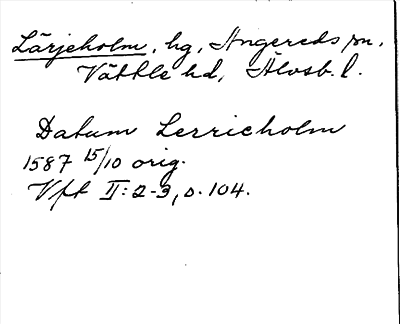 Lärjeholm, hg, Angereds sn,
Vättle hd, Älvsb. l.
Datum Lerricholm
1587 15/10 orig.
Vfk II: 2-3, s. 104.